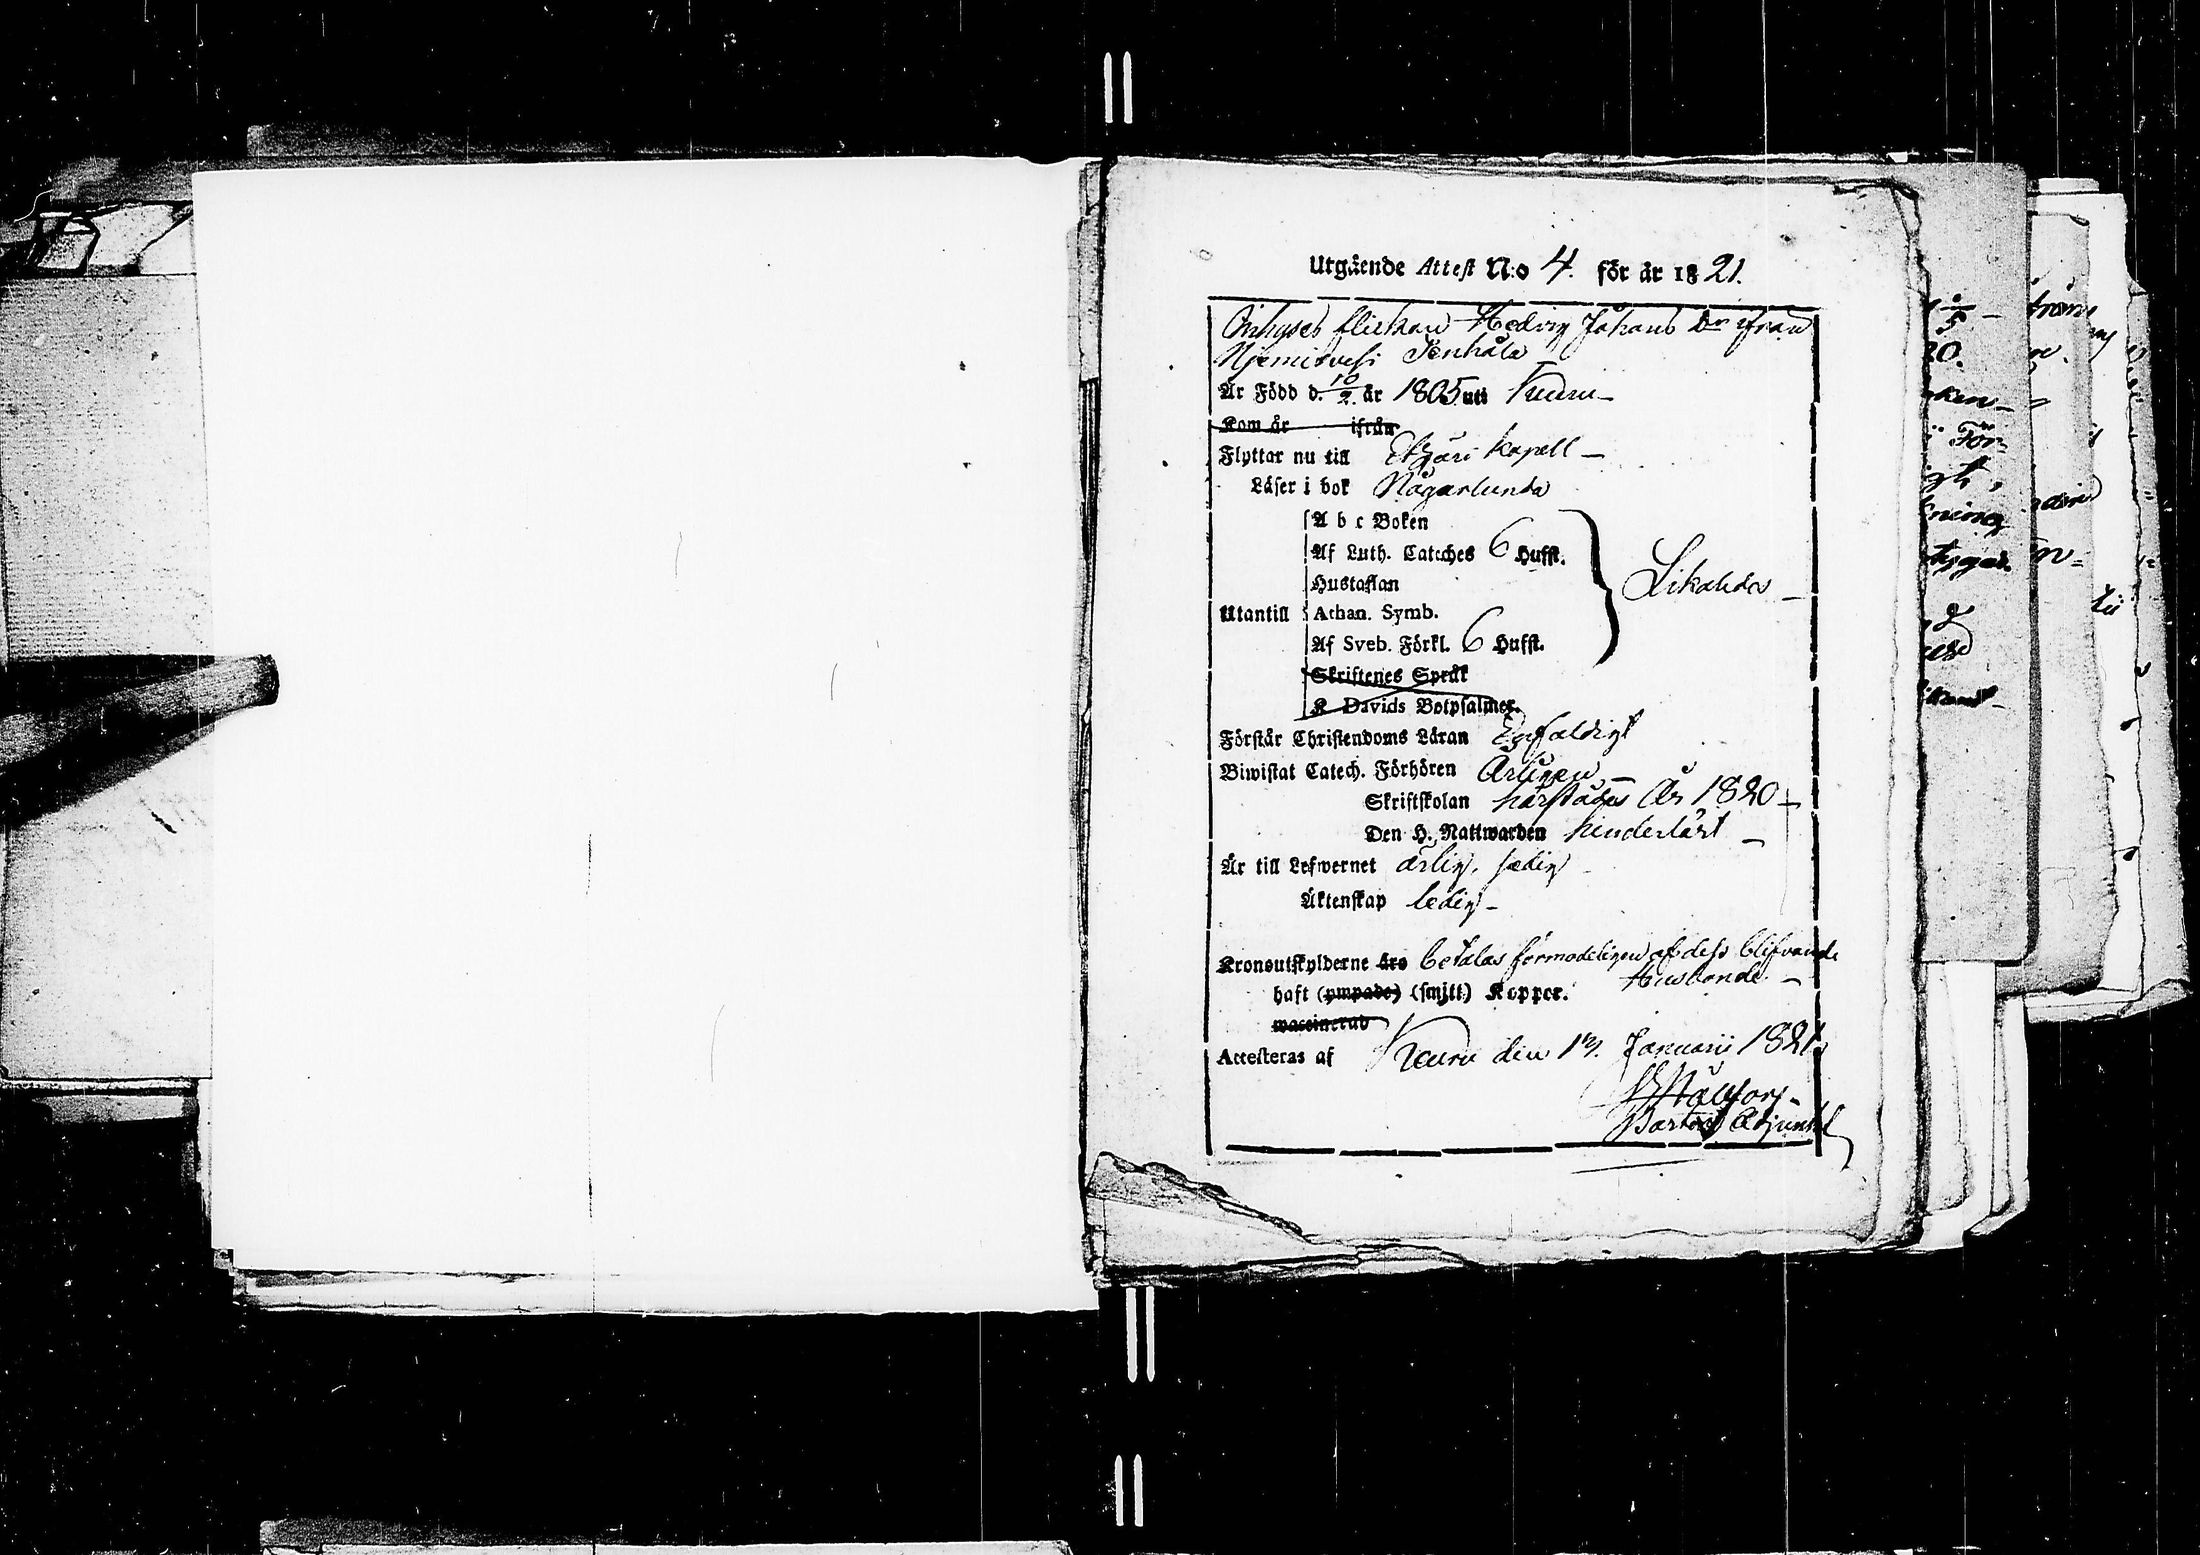 Utgående Attest N:o 4. för år 1821.
Inhyses flickan Hedvig Johans Dr ifrån
Njemisvesi Penhåla
Är Född d. 10/2 år 1805 uti Keuru
Kom år ifrån
Flyttar nu till Etzäri Kapell
Läser i bok Någorlunda
A b c Boken
Af Luth. Cateches 6 Hufst.
Hustaflan
Likaledes
Utantill Athan. Symb.
Af Sveb. Förkl. 6 Hufst.
Skriftenes Språk
K Davids Botpsalmer.
Förstår Christendoms Läran Enfaldigt
Biwistat Catech. Förhören Årligen
Skriftskolan härstädes År 1820
Den H. Nattwarden hinderlöst
Är till Lefwernet ärlig, sedig
Äktenskap ledig
Kronoutskylderne äro betalas förmodeligen af dess blifvande
Husbonde
haft (ympade) (smitt) Koppor.
waccinerad
Attesteras af Keuru den 13. Januarii 1821.
Pastors Adjunkt